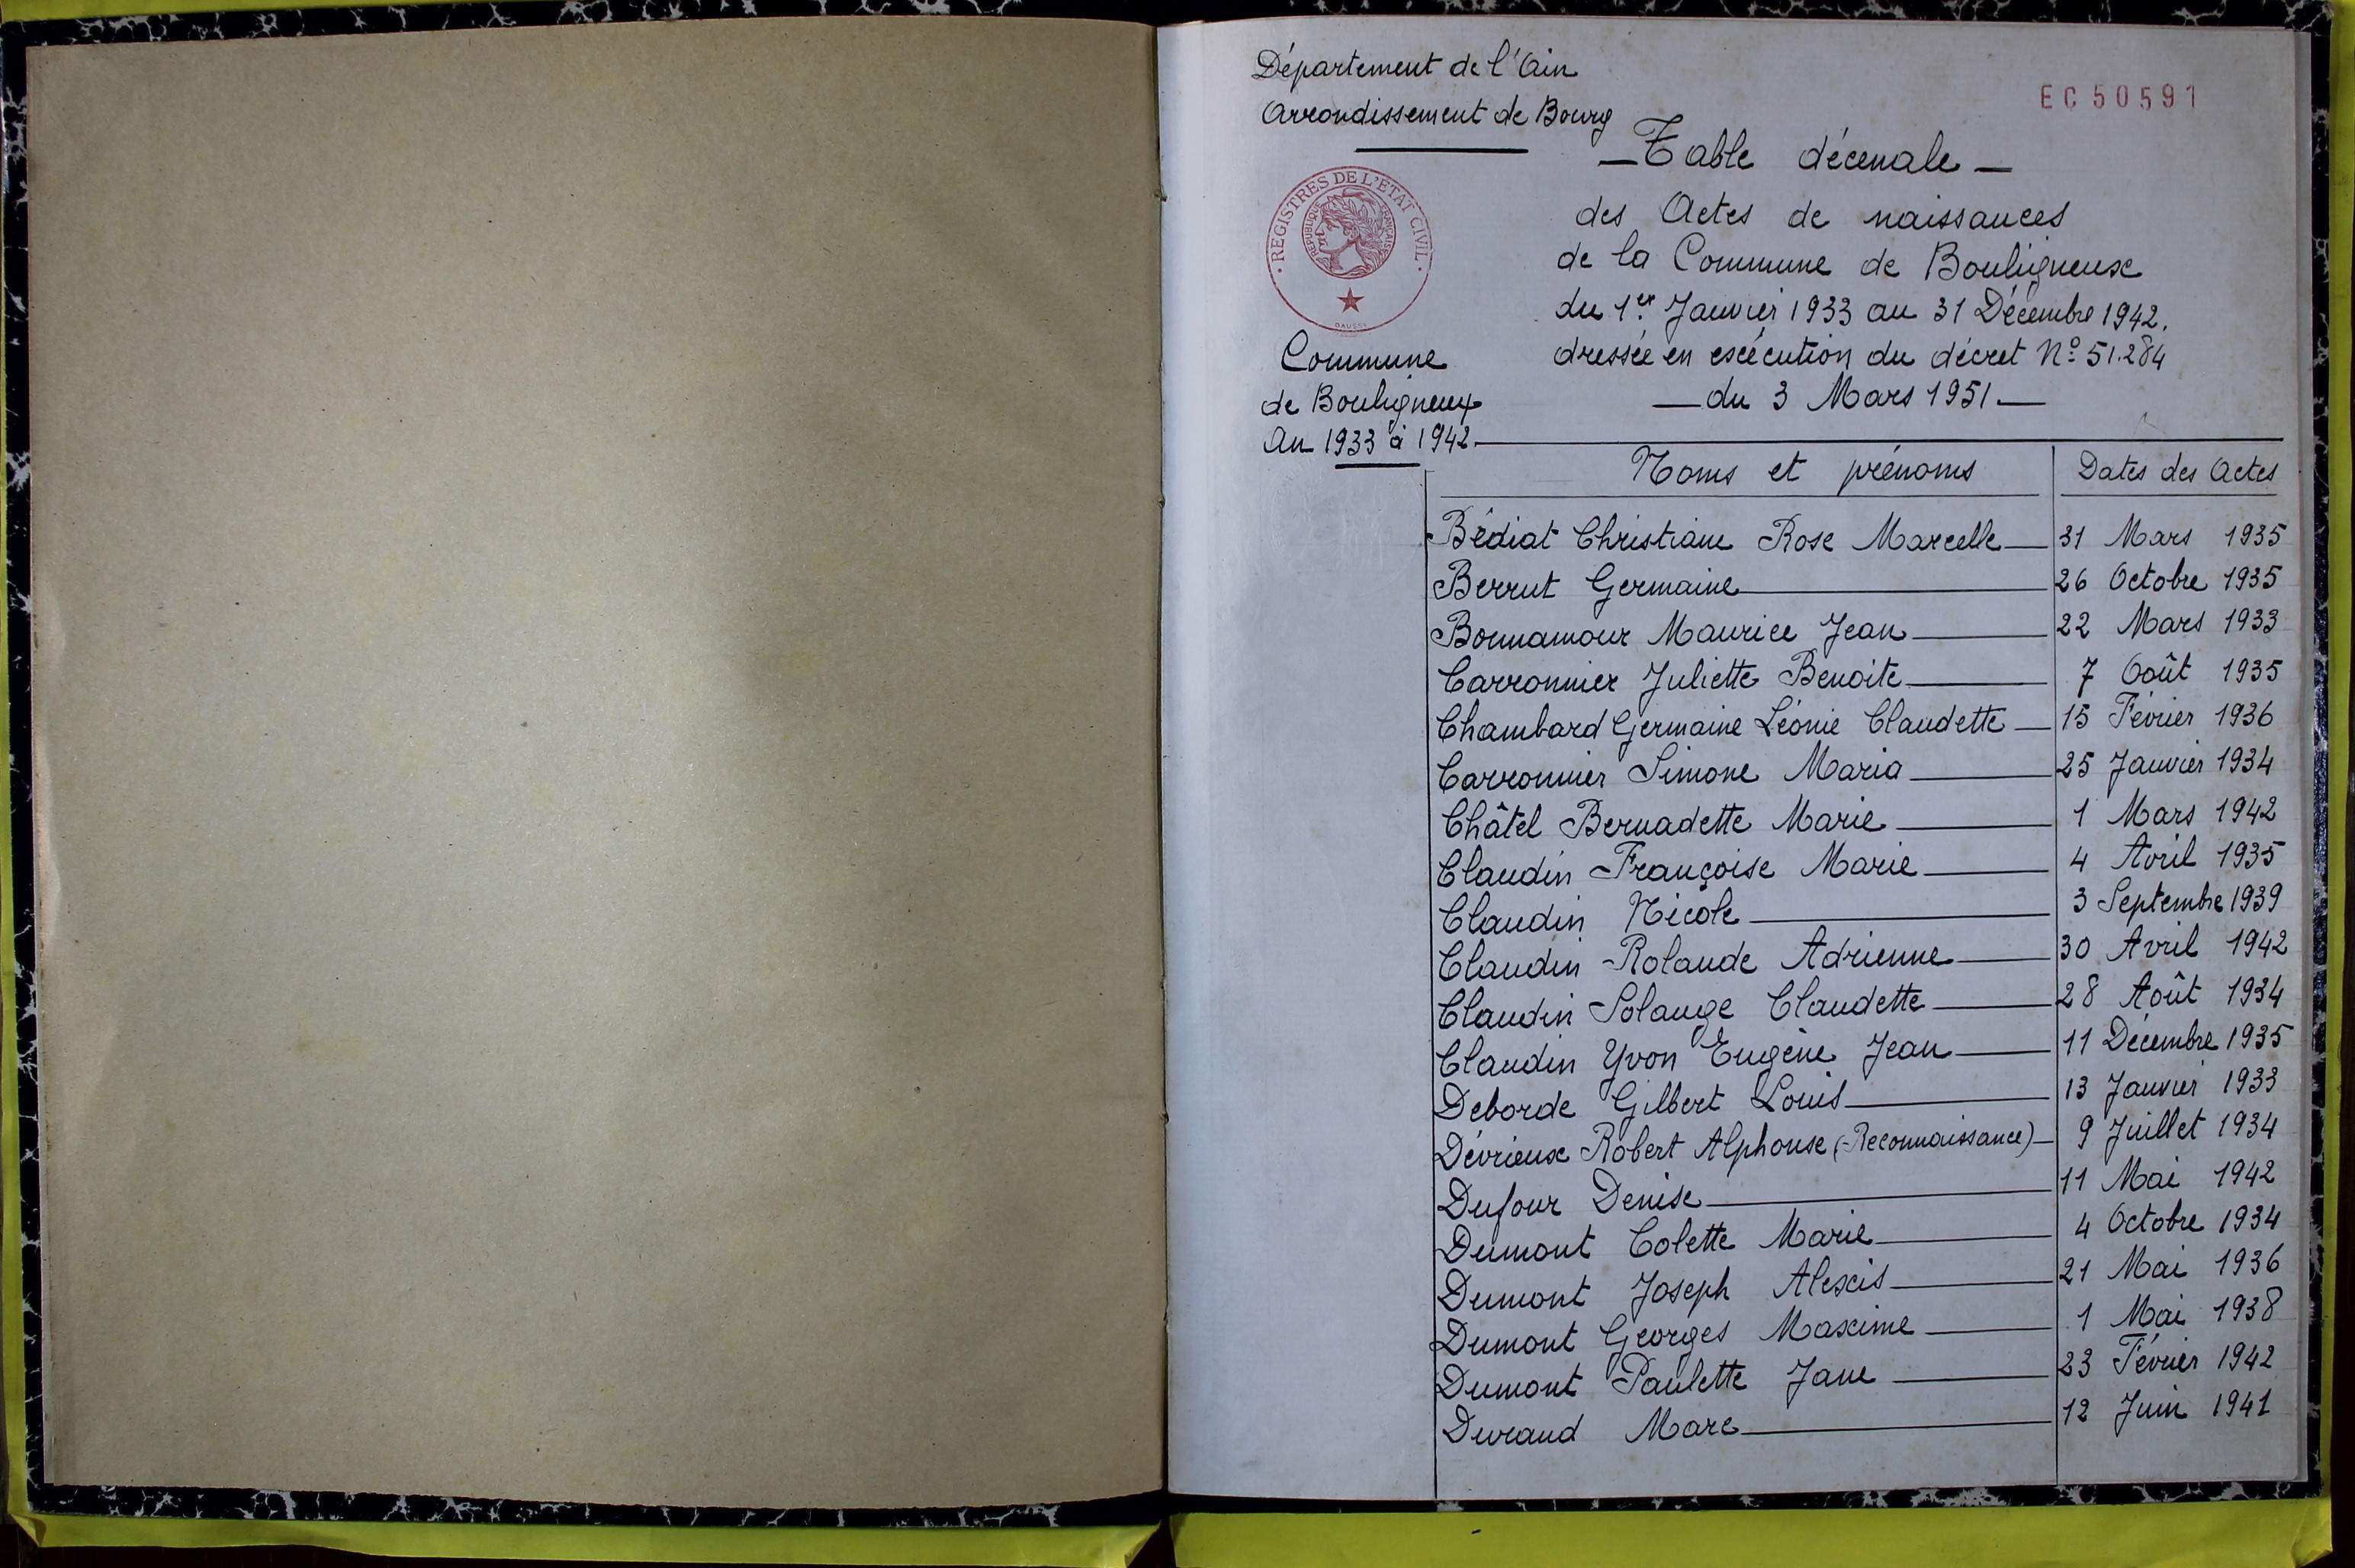 Département de l'Ain
Arrondissement de Bourg
EC 50591
— Table décenale —
des Actes de naissances
de la Commune de Bouligneux
du 1er Janvier 1933 au 31 Décembre 1942.
dressée en exécution du décret No 51.284
— du 3 Mars 1951 —
· REGISTRES DE L'ETAT CIVIL ·
REPUBLIQUE FRANÇAISE
Commune
de Bouligneux
An 1933 à 1942
Noms et prénoms Dates des Actes
Bédiat Christiane Rose Marcelle — 31 Mars 1935
Berrut Germaine — 26 Octobre 1935
Bonnamour Maurice Jean — 22 Mars 1933
Carronnier Juliette Benoite — 7 Août 1935
Chambard Germaine Léonie Claudette — 15 Février 1936
Carronnier Simone Maria — 25 Janvier 1934
Châtel Bernadette Marie — 1 Mars 1942
Claudin Françoise Marie — 4 Avril 1935
Claudin Nicole — 3 Septembre 1939
Claudin Rolande Adrienne — 30 Avril 1942
Claudin Solange Claudette — 28 Août 1934
Claudin Yvon Eugène Jean — 11 Décembre 1935
Deborde Gilbert Louis — 13 Janvier 1933
Dévrieux Robert Alphonse (Reconnaissance) — 9 Juillet 1934
Dufour Denise — 11 Mai 1942
Dumont Colette Marie — 4 Octobre 1934
Dumont Joseph Alexis — 21 Mai 1936
Dumont Georges Maxime — 1 Mai 1938
Dumont Paulette Jane — 23 Février 1942
Durand Marc — 12 Juin 1941